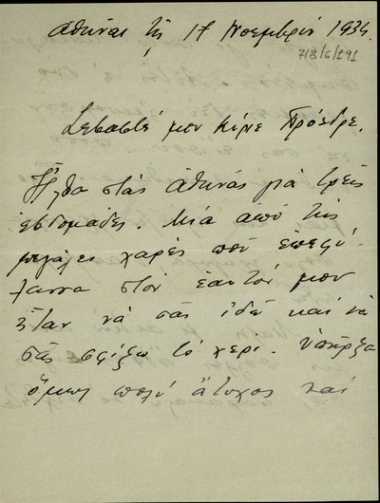 Ἀθῆναι τῇ 17 Νοεμβρίου 1934
713/6/291
Σεβαστέ μου Κύριε Πρόεδρε.
Ἦλθα στὰς Ἀθήνας γιὰ τρεῖς
ἑβδομάδες. Μία ἀπὸ τὶς
μεγάλες χαρὲς ποὺ ἐπεφύ-
λασσα στὸν ἑαυτόν μου
ἦταν νὰ σᾶς ἰδῶ καὶ νὰ
σᾶς σφίξω τὸ χέρι. Ὑπῆρξα
ὅμως πολὺ ἄτυχος καὶ